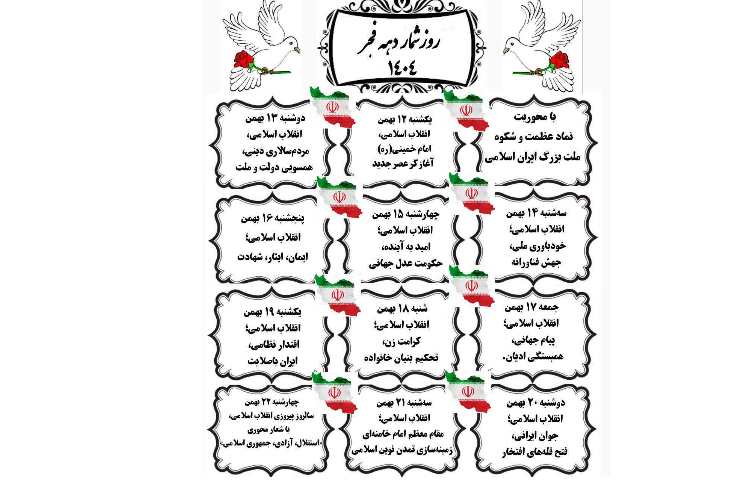 روز شمار دهه فجر
۱۴۰۴
با محوریت
نماد عظمت و شکوه
ملت بزرگ ایران اسلامی
یکشنبه ۱۲ بهمن
انقلاب اسلامی،
امام خمینی(ره)
آغازگر عصر جدید
دوشنبه ۱۳ بهمن
انقلاب اسلامی،
مردم‌سالاری دینی،
همسویی دولت و ملت
سه‌شنبه ۱۴ بهمن
انقلاب اسلامی؛
خودباوری ملی،
جهش فناورانه
چهارشنبه ۱۵ بهمن
انقلاب اسلامی؛
امید به آینده،
حکومت عدل جهانی
پنجشنبه ۱۶ بهمن
انقلاب اسلامی؛
ایمان، ایثار، شهادت
جمعه ۱۷ بهمن
انقلاب اسلامی؛
پیام جهانی،
همبستگی ادیان.
شنبه ۱۸ بهمن
انقلاب اسلامی؛
کرامت زن،
تحکیم بنیان خانواده
یکشنبه ۱۹ بهمن
انقلاب اسلامی؛
اقتدار نظامی،
ایران باصلابت
دوشنبه ۲۰ بهمن
انقلاب اسلامی؛
جوان ایرانی،
فتح قله‌های افتخار
سه‌شنبه ۲۱ بهمن
انقلاب اسلامی؛
مقام معظم امام خامنه‌ای
زمینه‌سازی تمدن نوین اسلامی
چهارشنبه ۲۲ بهمن
سالروز پیروزی انقلاب اسلامی،
با شعار محوری
«استقلال، آزادی، جمهوری اسلامی»